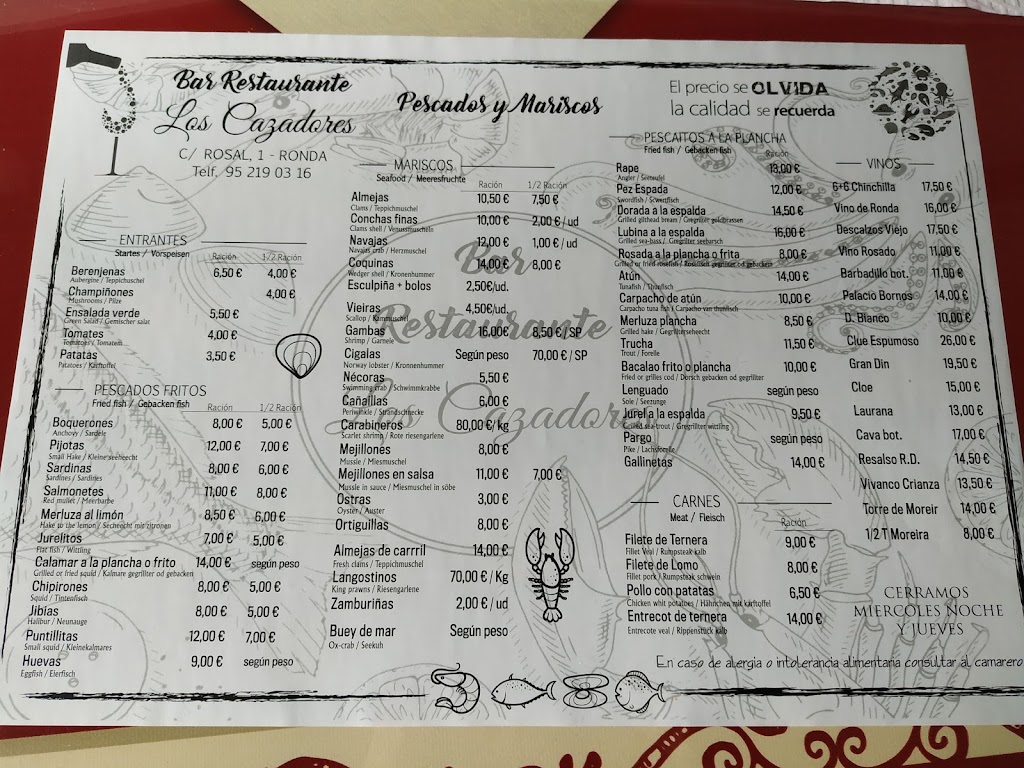 Bar Restaurante
Los Cazadores
C/ ROSAL, 1 - RONDA
Telf. 95 219 03 16
Pescados y Mariscos
El precio se OLVIDA
la calidad se recuerda
ENTRANTES
Startes / Vorspeisen
Ración 1/2 Ración
Berenjenas 6,50 € 4,00 €
Aubergine / Teppichuschel
Champiñones 4,00 €
Mushrooms / Pilze
Ensalada verde 5,50 €
Green Salad / Gemischer salat
Tomates 4,00 €
Tomatoes / Tomatem
Patatas 3,50 €
Patatoes / Kartoffel
PESCADOS FRITOS
Fried fish / Gebacken fish
Ración 1/2 Ración
Boquerones 8,00 € 5,00 €
Anchovy / Sardele
Pijotas 12,00 € 7,00 €
Small Hake / Kleine seeheecht
Sardinas 8,00 € 6,00 €
Sardines / Sardines
Salmonetes 11,00 € 8,00 €
Red mullet / Meerbarbe
Merluza al limón 8,50 € 6,00 €
Hake to the lemon / Secheecht mit zitronen
Jurelitos 7,00 € 5,00 €
Flat fish / Wittling
Calamar a la plancha o frito 14,00 € según peso
Grilled or fried squid / Kalmare gegriliter od gebacken
Chipirones 8,00 € 5,00 €
Squid / Tintenfisch
Jibias 8,00 € 5,00 €
Halibur / Neunauge
Puntillitas 12,00 € 7,00 €
Small squid / Kleinekalmares
Huevas 9,00 € según peso
Eggfish / Eierfisch
MARISCOS
Seafood / Meeresfruchte
Ración 1/2 Ración
Almejas 10,50 € 7,50 €
Clams / Teppichmuschel
Conchas finas 10,00 € 2,00 € / ud
Clams shell / Venusmuscheln
Navajas 12,00 € 1,00 € / ud
Navajas crab / Herzmuschel
Coquinas 14,00 € 8,00 €
Wedger shell / Kronenhummer
Esculpiña + bolos 2,50€/ud.
Vieiras 4,50€/ud.
Scallop / Kammuschel
Gambas 16.00€ 8,50 € / SP
Shrimp / Garnele
Cigalas Según peso 70,00 € / SP
Norway lobster / Kronnenhummer
Nécoras 5,50 €
Swimming crab / Schwimmkrabbe
Cañaíllas 6,00 €
Periwinkle / Strandschnecke
Carabineros 80,00 €/ kg
Scarlet shrimp / Rote riesengarlene
Mejillones 8,00 €
Mussle / Miesmuschel
Mejillones en salsa 11,00 € 7,00 €
Mussle in sauce / Miesmuschel in söbe
Ostras 3,00 €
Oyster / Auster
Ortiguillas 8,00 €
Almejas de carrril 14,00 €
Fresh clains / Teppichmuschel
Langostinos 70,00 € / Kg
King prawns / Riesengarlene
Zamburiñas 2,00 € / ud
Buey de mar Según peso
Ox-crab / Seekuh
Bar
Restaurante
Los Cazadores
PESCAITOS A LA PLANCHA
Fried fish / Gebacken fish
Ración
Rape 18,00 €
Angler / Seeteufel
Pez Espada 12,00 €
Swordfish / Scwertfisch
Dorada a la espalda 14,50 €
Grilled gilthead bream / Gregrilter goldbrassen
Lubina a la espalda 16,00 €
Grilled sea-bass / Gregrilter seebarsch
Rosada a la plancha o frita 8,00 €
Atún 14,00 €
Tunafish / Thunfisch
Carpacho de atún 10,00 €
Carpacho tuna fish / Carpacho van thunfisch
Merluza plancha 8,50 €
Grilled hake / Gegrillterseheecht
Trucha 11,50 €
Trout / Forelle
Bacalao frito o plancha 10,00 €
Fried or grilles cod / Dorsch gebacken od gegrillter
Lenguado según peso
Sole / Seezunge
Jurel a la espalda 9,50 €
Grilled sea-trout / Gregrillter wittling
Pargo según peso
Pike / Lachsforelle
Gallinetas 14,00 €
CARNES
Meat / Fleisch
Ración
Filete de Ternera 9,00 €
Fillet Veal / Rumpsteak kalb
Filete de Lomo 8,00 €
Fillet pork / Rumpsteak schwein
Pollo con patatas 6,50 €
Chicken whit potatoes / Hähnchen mit kartoffel
Entrecot de ternera 14,00 €
Entrecote veal / Rippenstück kalb
VINOS
6+6 Chinchilla 17,50 €
Vino de Ronda 16,00 €
Descalzos Viejo 17,50 €
Vino Rosado 11,00 €
Barbadillo bot. 11,00 €
Palacio Bornos 14,00 €
D. Blanco 10,00 €
Clue Espumoso 26,00 €
Gran Din 19,50 €
Cloe 15,00 €
Laurana 13,00 €
Cava bot. 17,00 €
Resalso R.D. 14,50 €
Vivanco Crianza 13,50 €
Torre de Moreir 14,00 €
1/2 T Moreira 8,00 €
CERRAMOS
MIERCOLES NOCHE
Y JUEVES
En caso de alergia o intolerancia alimentaria consultar al camarero